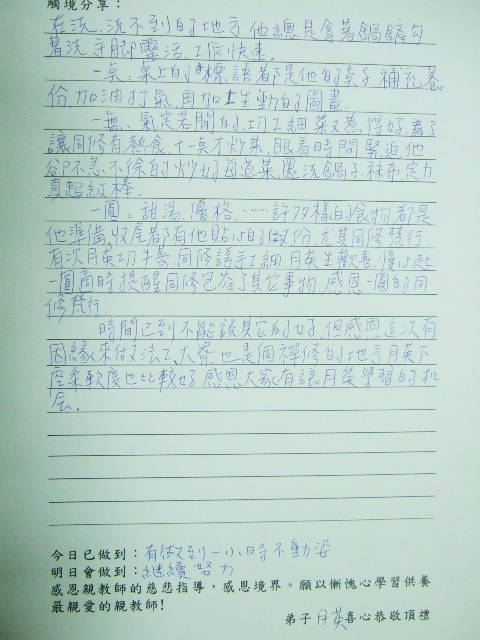 觸境分享：
在洗，洗不到的地方他總是拿著鍋鏟勾
著洗手腳靈活，工作快速。
一桌：桌上的標語都是他的桌子補充養
份加油打氣，再加上生動的圖畫。
一無：氣定若閒的，切工細菜又煮得好，為了
讓同修有熱食十一點才炒菜，眼看時間緊迫他
卻不急不徐的炒好每道菜還洗鍋子抹布，定力
真超級棒。
一圓：甜湯、優格、……許多樣的食物都是
他準備，收尾都有他貼心的做份尤其同修梵行
有次月英切牛蒡，同修講手工細月英生歡喜，慢心起
一圓適時提醒同修包容了其它事物感恩一圓的同
修梵行。
時間已到不能說其它的好，但感恩這次有
因緣來做法工，大寮也是個禪修的地方月英下
座柔軟度也比較好感恩大家有讓月英學習的機
会。
今日已做到：有做到一小時不動姿
明日會做到：繼續努力
感恩親教師的慈悲指導，感恩境界。願以慚愧心學習供養
最親愛的親教師！
弟子 月英喜心恭敬頂禮